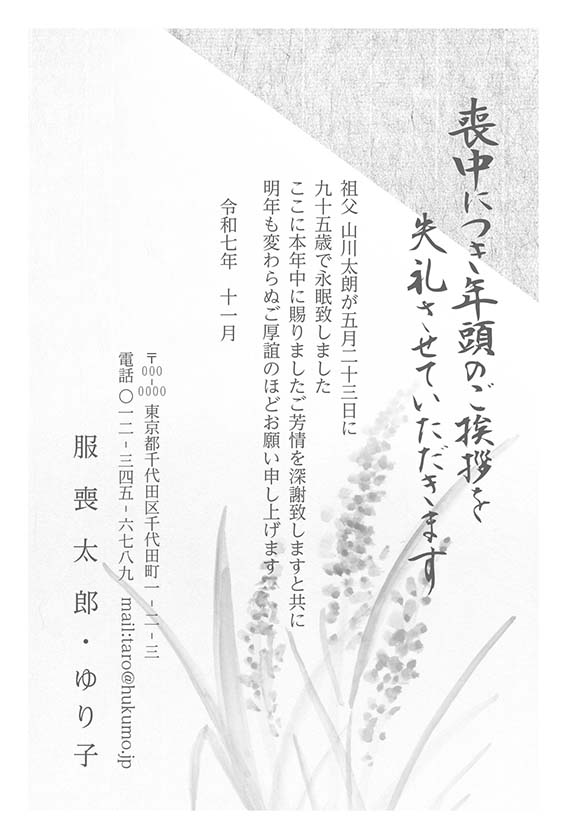 喪中につき年頭のご挨拶を
失礼させていただきます
祖父 山川太朗が五月二十三日に
九十五歳で永眠致しました
ここに本年中に賜りましたご芳情を深謝致しますと共に
明年も変わらぬご厚誼のほどお願い申し上げます
令和七年 十一月
〒000-0000 東京都千代田区千代田町一-二-三
電話 〇一二-三四五-六七八九 mail:taro@hukumo.jp
服喪太郎・ゆり子